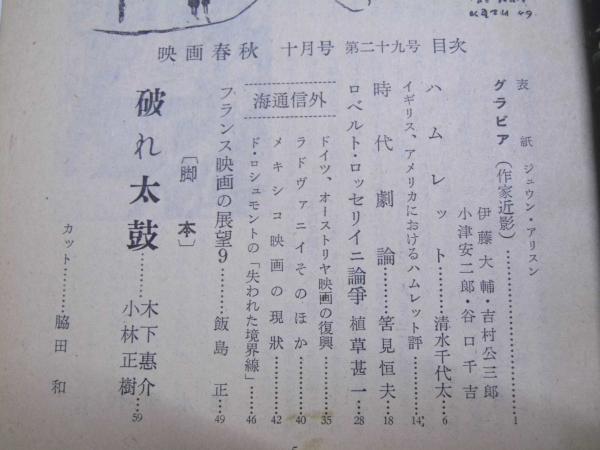 映画春秋 十月号 第二十九号 目次
表紙 ジュウン・アリスン
グラビア(作家近影)………1
伊藤大輔・吉村公三郎
小津安二郎・谷口千吉
ハムレット………清水千代太…6
イギリス、アメリカにおけるハムレット評…14
時代劇論………筈見恒夫…18
ロベルト・ロッセリイニ論爭 植草甚一…28
海外通信
ドイツ、オーストリヤ映画の復興………35
ラドヴァニイそのほか………40
メキシコ映画の現狀………42
ド・ロシュモントの「失われた境界線」…46
フランス映画の展望9………飯島正…49
〔脚本〕
破れ太鼓………木下惠介
小林正樹…59
カット………脇田和